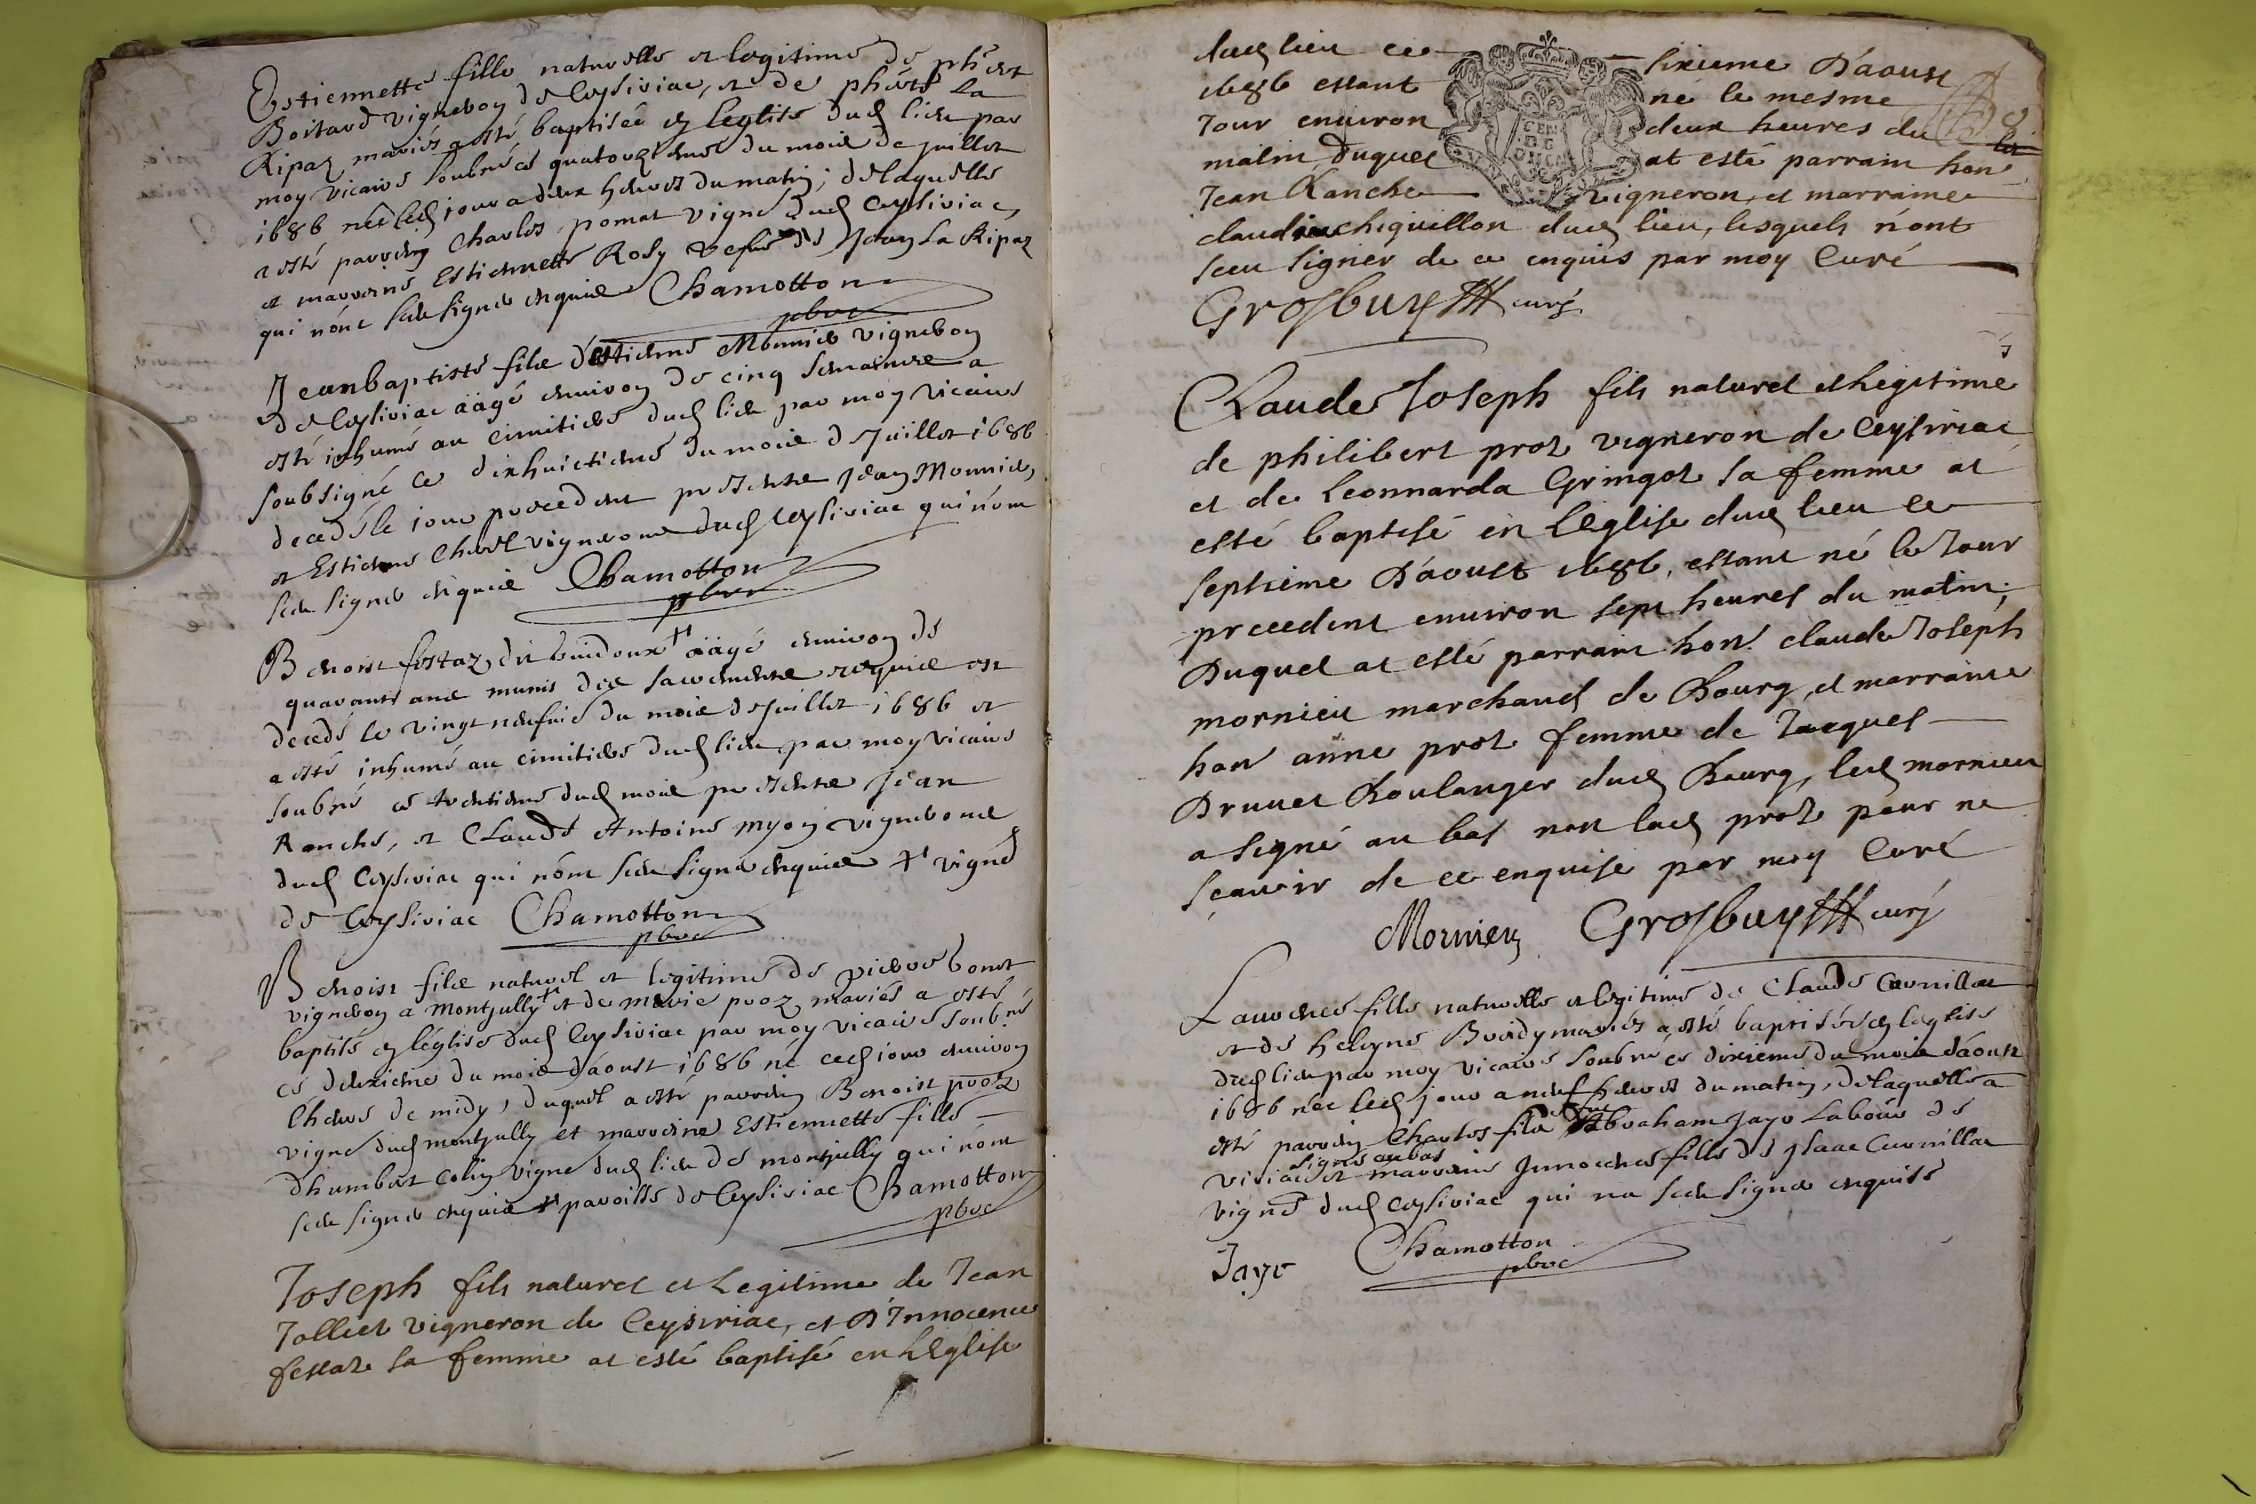 Estiennette fille naturelle et legitime de phert
Boitard vigneron de Ceysiriac, et de pherte La
Ripaz mariés a esté baptisée en leglise dud lieu par
moy vicaire soubné ce quatorziesme du mois de juillet
1686 née led jour a deux heures du matin; de laquelle
a esté parrein Charles pomat vigne dud Ceysiriac,
et marreine Estiennette Rosy vefve de Jean La Ripaz
qui nont sceu signer enquis Chamotton
pbre
Jeanbaptiste fils destienne Monnier vigneron
de Ceysiriac aagé environ de cinq semaines a
esté inhumé au cimitiere dud lieu par moy vicaire
soubsigné ce dixhuictieme du mois de Juillet 1686
decedé le jour precedent presents Jean Monnier,
et Estienne Chevel vignerons dud Ceysiriac qui nont
sceu signer enquis Chamotton
pbre
Benoist festaz dit buidoux + aagé environ de
quarante ans munis des sacremens requis est
decedé le vingt neufvie du mois de Juillet 1686 et
a esté inhumé au cimitiere dud lieu par moy vicaire
soubné ce trentieme dud mois presents Jean
Ranche, et Claude Antoine myon vignerons
dud Ceysiriac qui nont sceu signer enquis + vigne
de Ceysiriac Chamotton
pbre
Benoist fils naturel et legitime de pierre bonet
vigneron a Montjully + et de Marie proz mariés a esté
baptisé en léglise dud Ceysiriac par moy vicaire soubné
ce deuxieme du mois dáoust 1686 né ced jour environ
lheure de midy, duquel a esté parrein Benoist proz
vigne dud montjully et marreine Estiennette fille
dhumbert colin vigne dud lieu de montjully qui nont
sceu signer enquis + paroisse de Ceysiriac Chamotton
pbre
Joseph fils naturel et Legitime de Jean
Jolliet vigneron de Ceysiriac, et D'Innocence
festaz sa femme at esté baptisé en LEglise
dud lieu ce sixieme D'aoust
1686 estant né le mesme
Jour environ deux heures du
matin Duquel at esté parrain hon
Jean Ranche vigneron, et marraine
claudine chiquillon dud lieu, lesquels n'ont
sceu signer de ce enquis par moy Curé
Grosbuy curé
Claude Joseph fils naturel et Legitime
de philibert proz vigneron de Ceysiriac
et de Leonnarda Gringoz sa femme at
esté baptisé en LEglise dud lieu ce
septieme D'aoust 1686, estant né le Jour
precedent environ sept heures du matin;
Duquel at esté parrain hon. claude Joseph
mornieu marchand de Bourg, et marraine
hon anne proz femme de Jacques
Druuet Boulanger dud Bourg, led mornieu
a signé au bas non lad proz pour ne
sçavoir de ce enquise par moy Curé
Mornieu Grosbuy curé
Laurence fille naturelle et legitime de Claude Curnillat
et de heleyne Buidy mariés a esté baptisée en leglise
dud lieu par moy vicaire soubné ce dixieme du mois dáoust
1686 née led jour a neuf heures du matin, de laquelle a
esté parrein Charles fils de feu Abraham Jayr Labour de
signé au bas
viriac et marreine Innocence fille de Isaac Curnillat
vigne dud Ceysiriac qui na sceu signer enquise
Jayr Chamotton
pbre